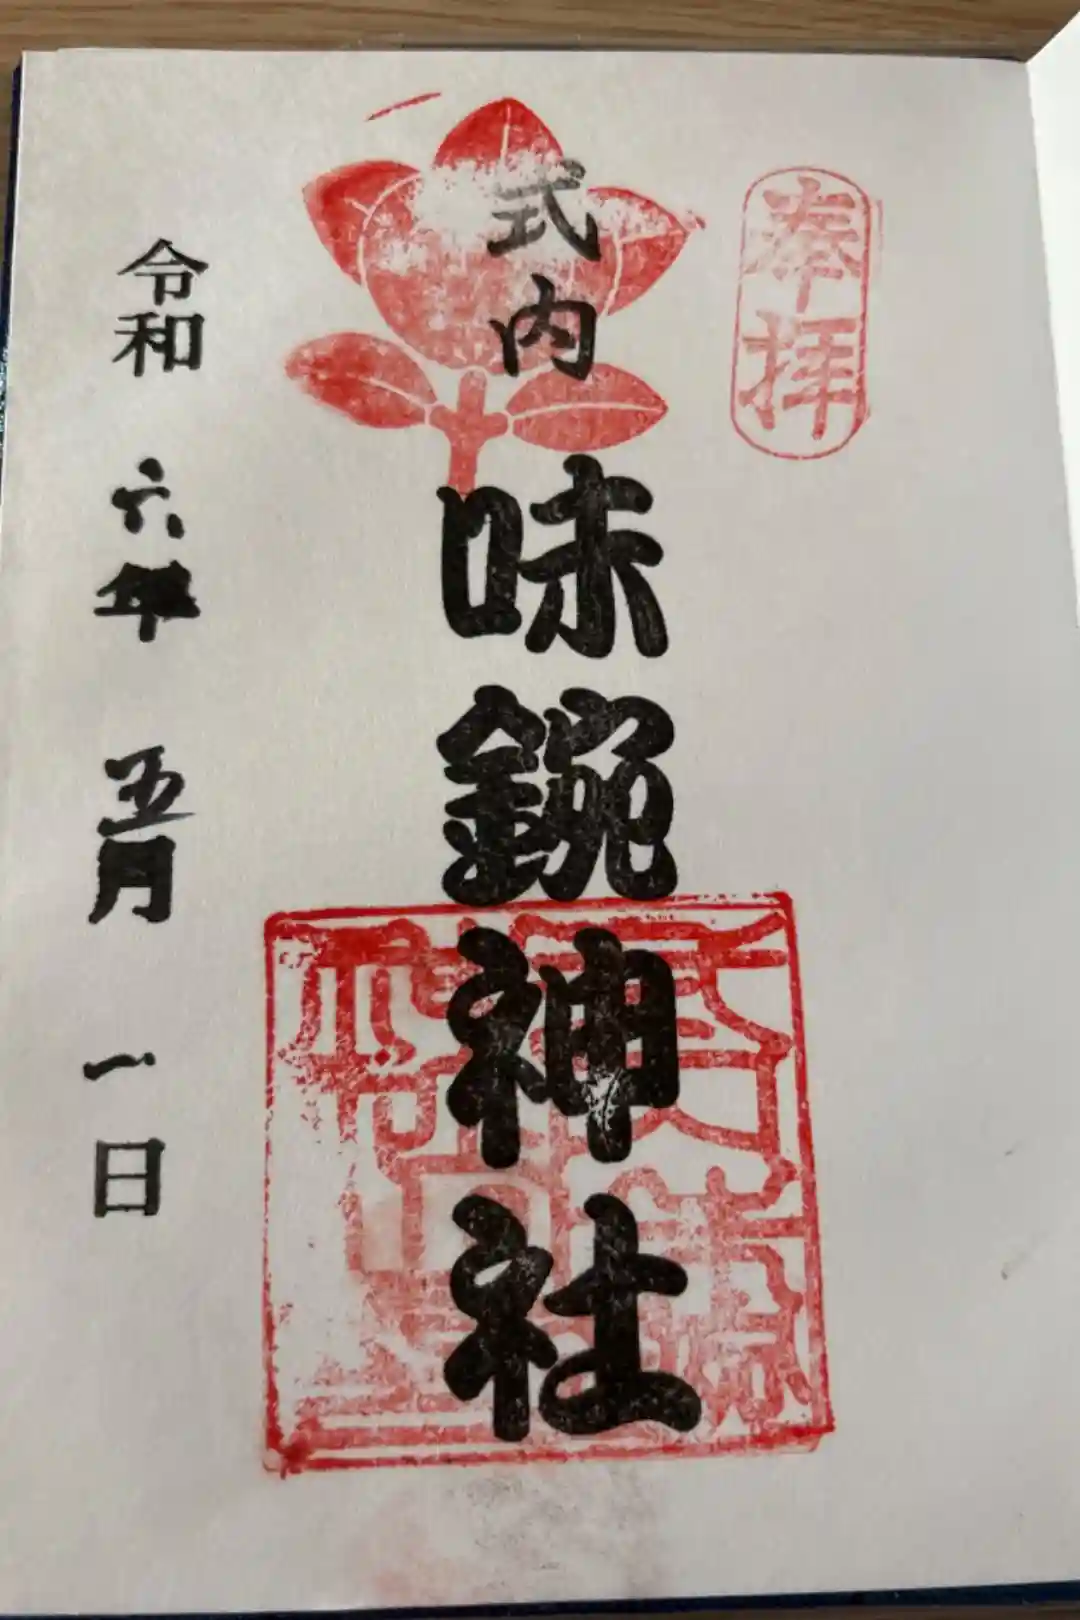 奉拝
式内
味鋺神社
令和 六年 五月 一日